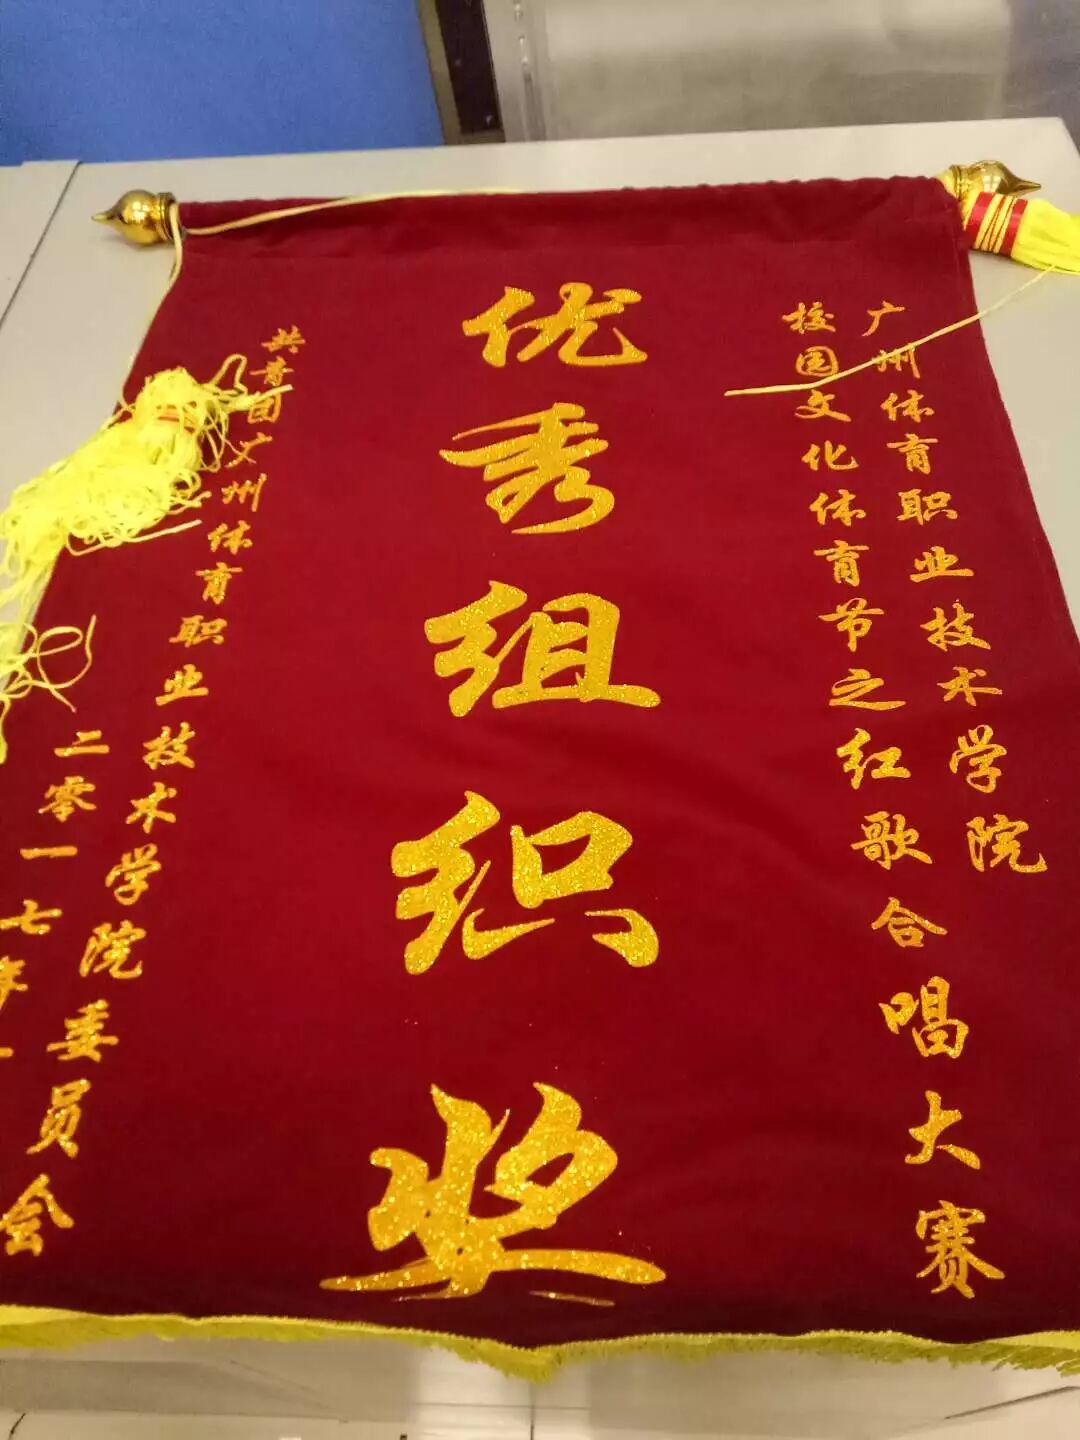 广州体育职业技术学院
校园文化体育节之红歌合唱大赛
优秀组织奖
共青团广州体育职业技术学院委员会
二零一七年